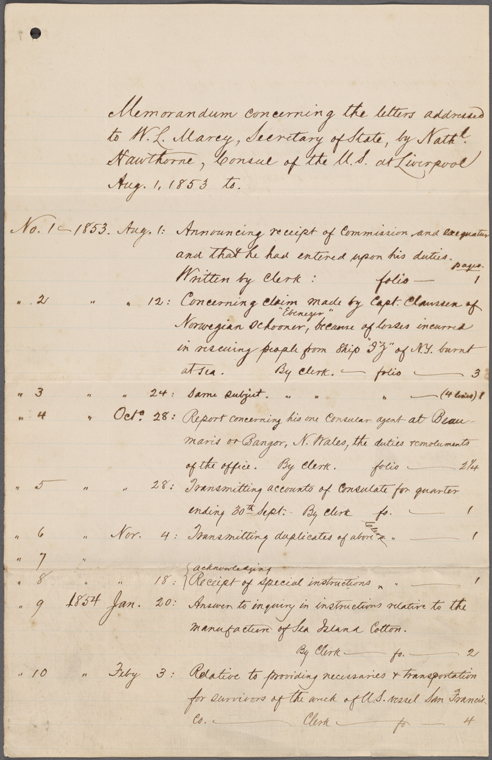 Memorandum concerning the letters addressed
to W. L. Marcy, Secretary of State, by Nathl.
Hawthorne, Consul of the U.S. at Liverpool
Aug. 1, 1853 to.
No. 1 - 1853. Aug. 1: Announcing receipt of Commission and exequatur
and that he had entered upon his duties.
pages.
Written by Clerk: folio — 1
" 2 " " 12: Concerning claim made by Capt. Claussen of
"Ebenezer"
Norwegian Schooner, because of losses incurred
in rescuing people from Ship of N.Y. burnt
at sea. By Clerk. — folio — 3
" 3 " " 24: Same subject. " " " — (4 lines) 1
" 4 " Octo. 28: Report concerning his one Consular agent at Beau-
maris or Bangor, N. Wales, the duties & emoluments
of the office. By Clerk. folio — 2¼
" 5 " " 28: Transmitting accounts of Consulate for quarter
ending 30th Sept. - By Clerk fo. — 1
" 6 " Nov. 4: Transmitting duplicates of above " — 1
" 7 "
acknowledging
" 8 " " 18: Receipt of special instructions " " — 1
" 9 1854 Jan. 20: Answer to inquiry in instructions relative to the
manufacture of Sea Island Cotton.
By Clerk — fo. — 2
" 10 " Feby 3: Relative to providing necessaries & transportation
for survivors of the wreck of U.S. vessel San Francis-
co. — Clerk — fo — 4